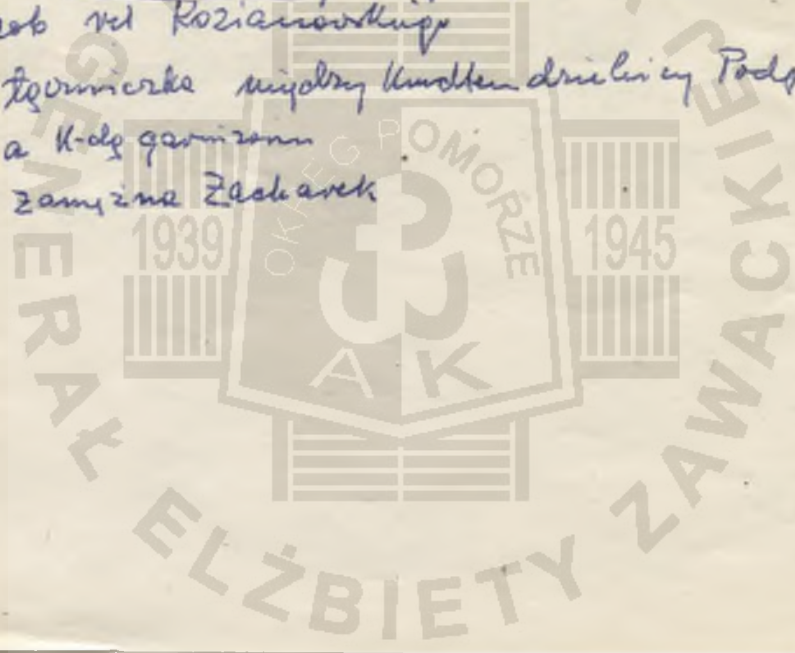 vel Rozianowskiego
łączniczka między Kmdtem dzielnicy Podg
a K-dą garnizonu
zamężna Zacharek
GENERAŁ ELŻBIETY ZAWACKIEJ
OKRĘG POMORZE
1939 1945
AK